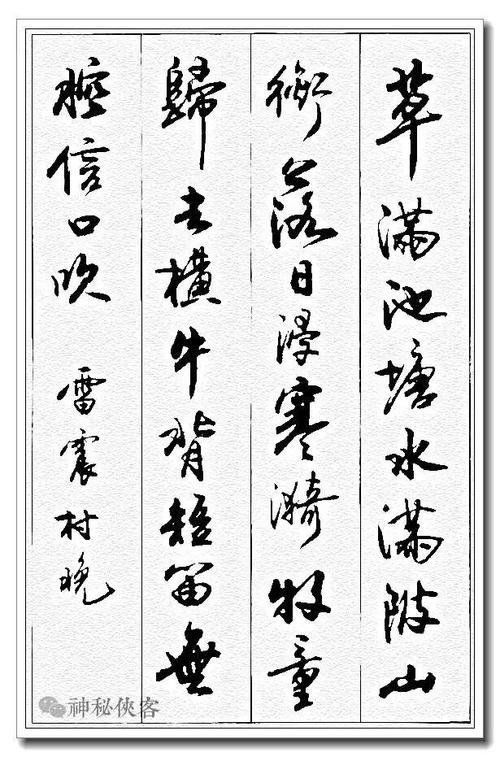 草滿池塘水滿陂山
銜落日浸寒漪牧童
歸去橫牛背短笛無
腔信口吹 雷震村晚
神秘俠客